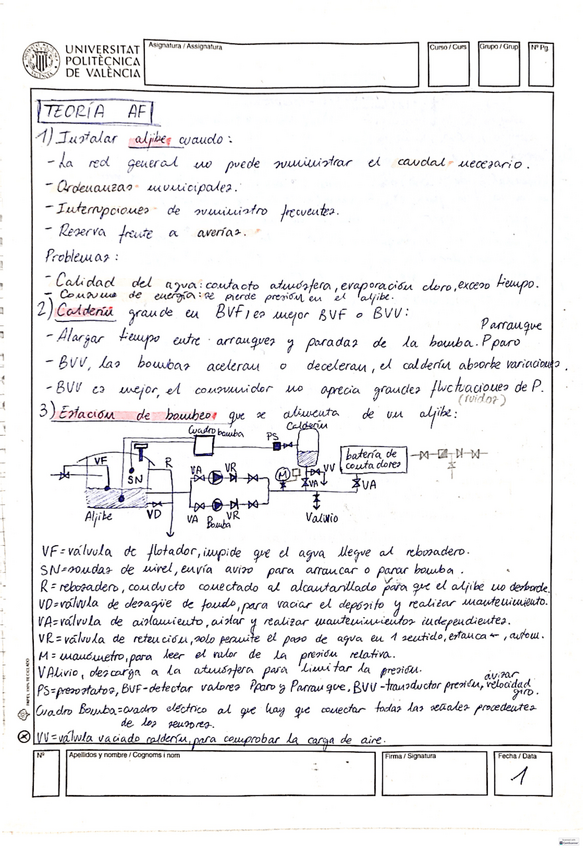 UNIVERSITAT
POLITÈCNICA
DE VALÈNCIA
Asignatura / Assignatura
Curso / Curs
Grupo / Grup
Nº Pg.
TEORÍA AF
1) Instalar aljibe cuando:
- La red general no puede suministrar el caudal necesario.
- Ordenanzas municipales.
- Interrupciones de suministro frecuentes.
- Reserva frente a averías.
Problemas:
- Calidad del agua: contacto atmósfera, evaporación cloro, exceso tiempo.
- Consumo de energía: se pierde presión en el aljibe.
2) Calderín grande en BVF, es mejor BVF o BVV:
Parranque
- Alargar tiempo entre arranques y paradas de la bomba. Pparo
- BVV, las bombas aceleran o deceleran, el calderín absorbe variaciones.
- BVV es mejor, el consumidor no aprecia grandes fluctuaciones de P.
(ruidos)
3) Estación de bombeo que se alimenta de un aljibe:
Calderín
Cuadro bomba
PS
VF
SN
R
VA
VR
M
VV
VA
batería de
contadores
VA
Aljibe
VD
VA
Bomba
VR
Valivio
VF = válvula de flotador, impide que el agua llegue al rebosadero.
SN = sondas de nivel, envía aviso para arrancar o parar bomba.
R = rebosadero, conducto conectado al alcantarillado para que el aljibe no desborde.
VD = válvula de desagüe de fondo, para vaciar el depósito y realizar mantenimiento.
VA = válvula de aislamiento, aislar y realizar mantenimientos independientes.
VR = válvula de retención, solo permite el paso de agua en 1 sentido, estanca, autom.
M = manómetro, para leer el valor de la presión relativa.
VAlivio, descarga a la atmósfera para limitar la presión.
avisar
PS = presostatos, BVF - detectar valores Pparo y Parranque, BVV - transductor presión, velocidad
giro.
Cuadro Bomba = cuadro eléctrico al que hay que conectar todas las señales procedentes
de los sensores.
VV = válvula vaciado calderín, para comprobar la carga de aire.
Nº
Apellidos y nombre / Cognoms i nom
Firma / Signatura
Fecha / Data
1